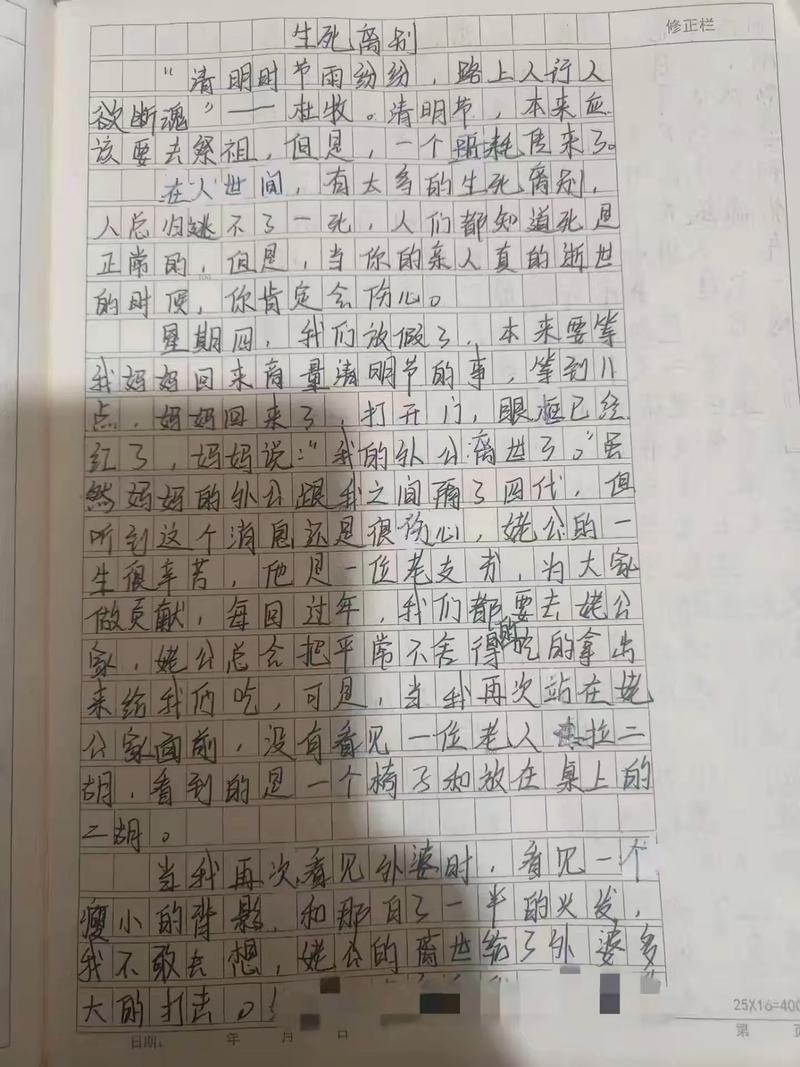 修正栏
生死离别
“清明时节雨纷纷，路上人行人
欲断魂”——杜牧。清明节，本来应
该要去祭祖，但是，一个噩耗传来了。
在人世间，有太多的生死离别，
人总归逃不了一死，人们都知道死是
正常的，但是，当你的亲人真的逝世
的时候，你肯定会伤心。
星期四，我们放假了，本来要等
我妈妈回来商量清明节的事，等到八
点，妈妈回来了，打开门，眼框已经
红了，妈妈说：“我的外公离世了。”虽
然妈妈的外公跟我之间隔了四代，但
听到这个消息还是很伤心，姥公的一
生很辛苦，他是一位老支书，为大家
做贡献，每回过年，我们都要去姥公
家，姥公总会把平常不舍得吃的拿出
来给我们吃，可是，当我再次站在姥
公家面前，没有看见一位老人拉二
胡，看到的是一个椅子和放在桌上的
二胡。
当我再次看见外婆时，看见一个
瘦小的背影，和那白了一半的头发，
我不敢去想，姥公的离世给了外婆多
大的打击。
25X16=400
日期： 年 月 日
第 页